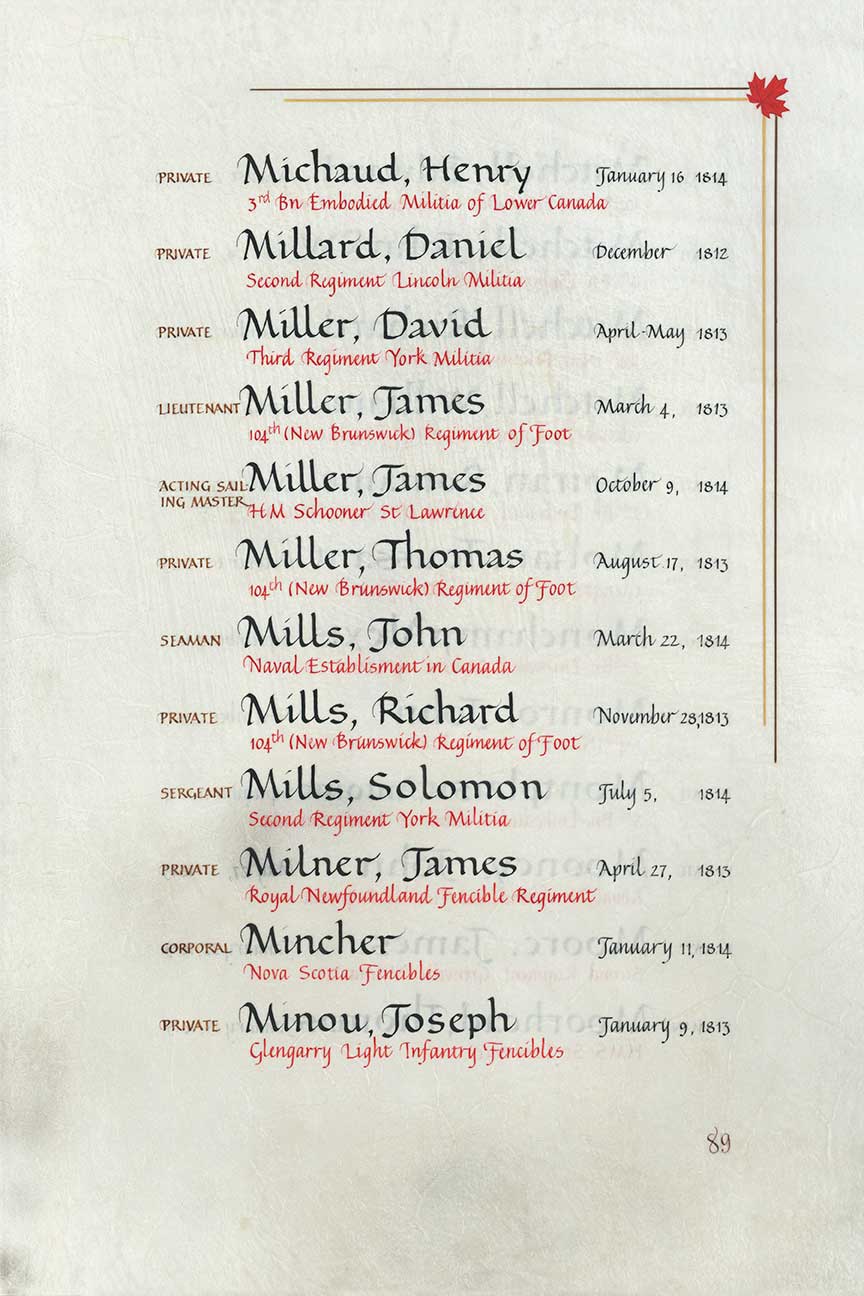 PRIVATE Michaud, Henry January 16 1814
3rd Bn Embodied Militia of Lower Canada
PRIVATE Millard, Daniel December 1812
Second Regiment Lincoln Militia
PRIVATE Miller, David April-May 1813
Third Regiment York Militia
LIEUTENANT Miller, James March 4, 1813
104th (New Brunswick) Regiment of Foot
ACTING SAIL- Miller, James October 9, 1814
ING MASTER HM Schooner St Lawrence
PRIVATE Miller, Thomas August 17, 1813
104th (New Brunswick) Regiment of Foot
SEAMAN Mills, John March 22, 1814
Naval Establisment in Canada
PRIVATE Mills, Richard November 28, 1813
104th (New Brunswick) Regiment of Foot
SERGEANT Mills, Solomon July 5, 1814
Second Regiment York Militia
PRIVATE Milner, James April 27, 1813
Royal Newfoundland Fencible Regiment
CORPORAL Mincher January 11, 1814
Nova Scotia Fencibles
PRIVATE Minou, Joseph January 9, 1813
Glengarry Light Infantry Fencibles
89